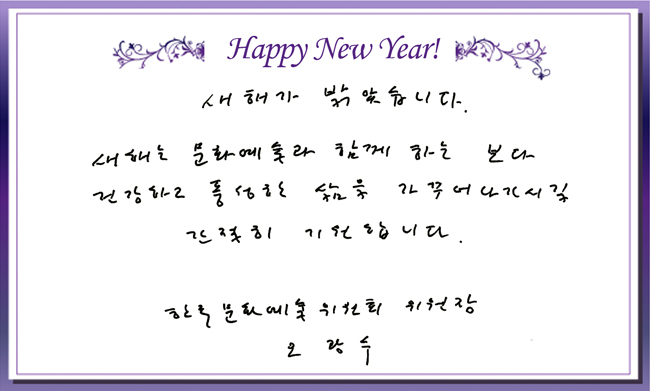 Happy New Year!
새해가 밝았습니다.
새해는 문화예술과 함께 하는 보다
건강하고 풍성한 삶을 가꾸어나가시길
간절히 기원합니다.
한국문화예술위원회 위원장
오광수